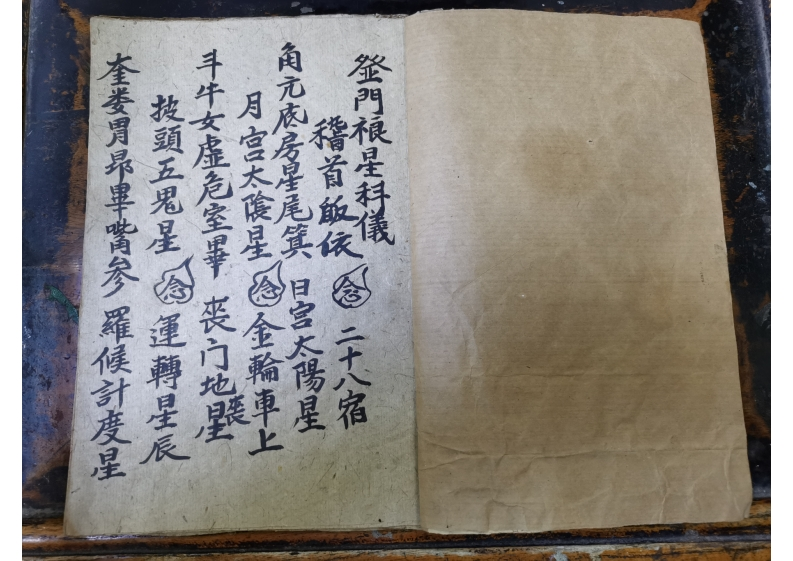 門星科儀
稽首皈依 念 二十八宿
角元底房星尾箕 日宮太陽星
月宮太陰星 念 金輪車上
斗牛女虛危室畢 喪门地星喪
披頭五鬼星 念 運轉星辰
奎娄胃昴畢嘴參 羅候計度星